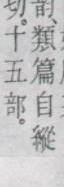 韻、類篇自縱
切。十五部。